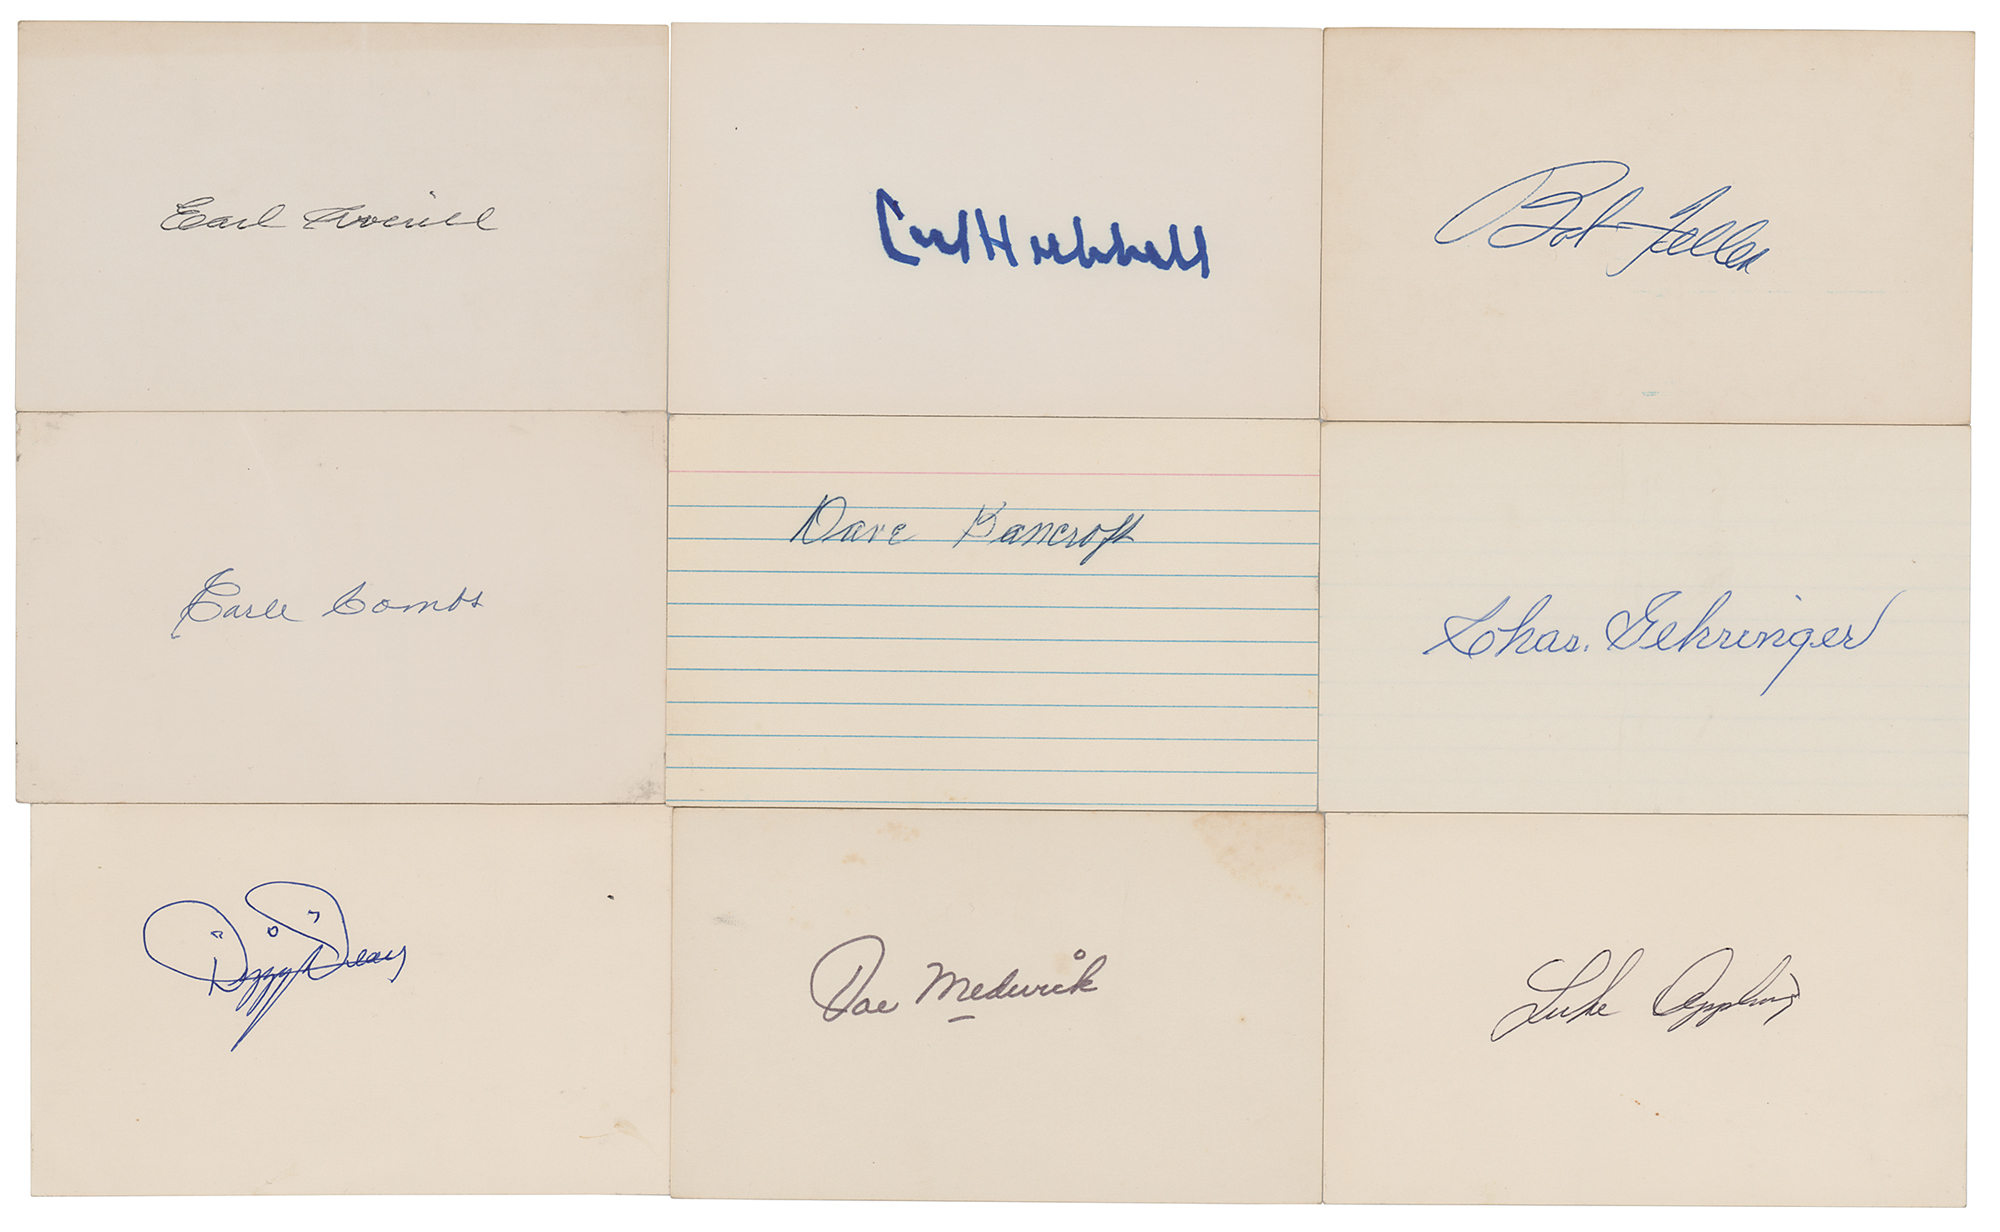 Earl Averill
Carl Hubbell
Bob Feller
Earle Combs
Dave Bancroft
Chas. Gehringer
Dizzy Dean
Joe Medwick
Luke Appling